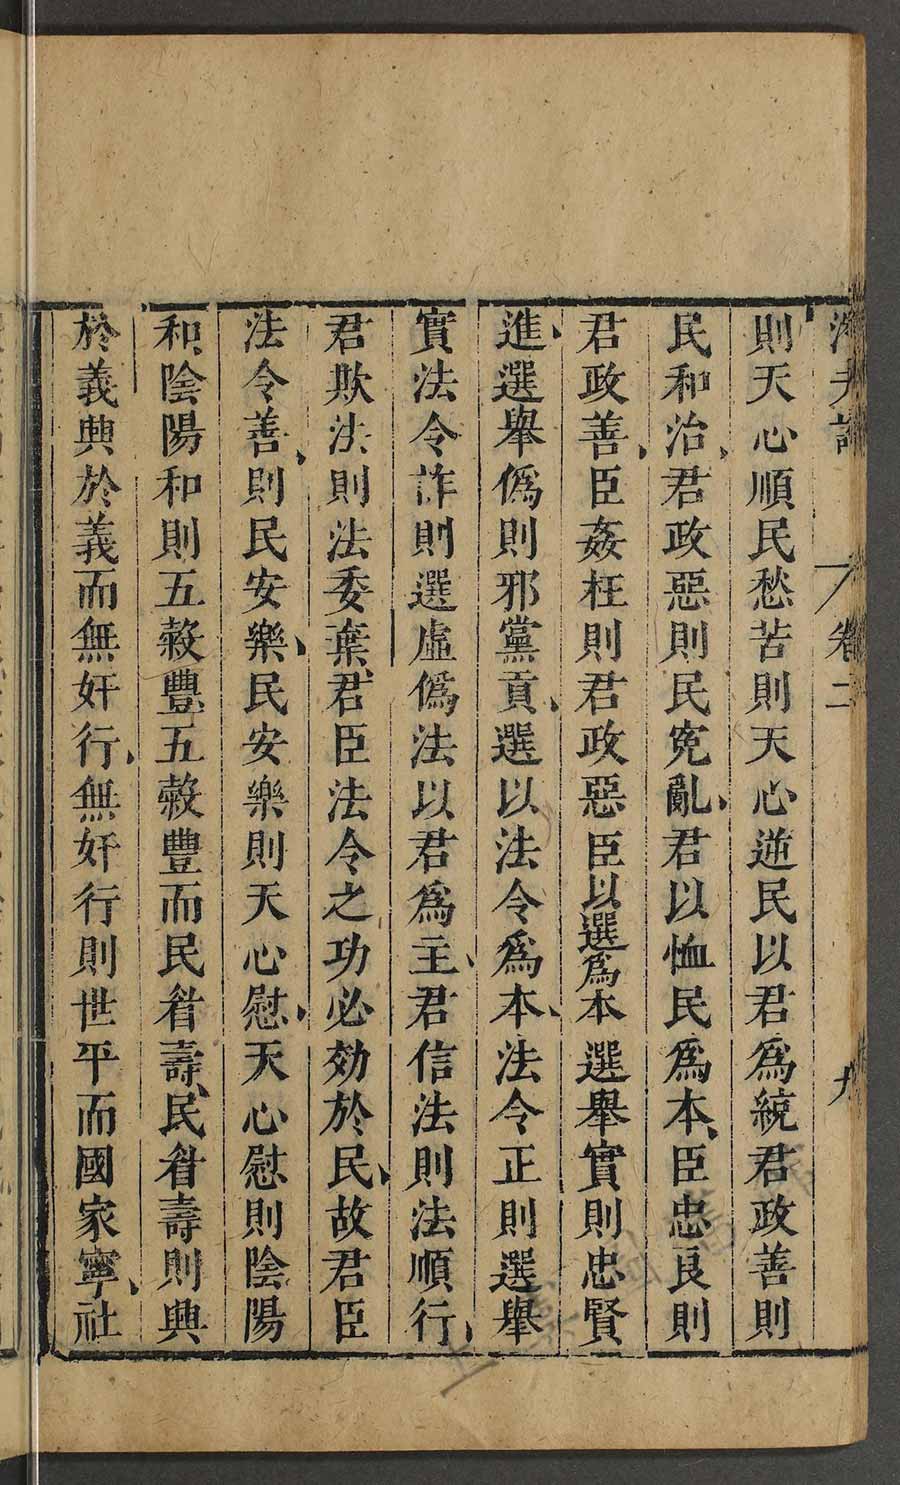 潛夫論 卷二 九
則天心順民愁苦則天心逆民以君爲統君政善則
民和治、君政惡則民寃亂、君以恤民爲本、臣忠良則
君政善、臣姦枉則君政惡臣以選爲本選舉實則忠賢
進、選舉僞則邪黨貢、選以法令爲本、法令正則選舉
實法令詐則選虛僞法以君爲主、君信法則法順行、
君欺法則法委棄、君臣法令之功必効於民、故君臣
法令善、則民安樂、民安樂則天心慰、天心慰則陰陽
和、陰陽和則五穀豐五穀豐而民眉壽、民眉壽則興
於義興於義而無奸行、無奸行則世平而國家寧、社